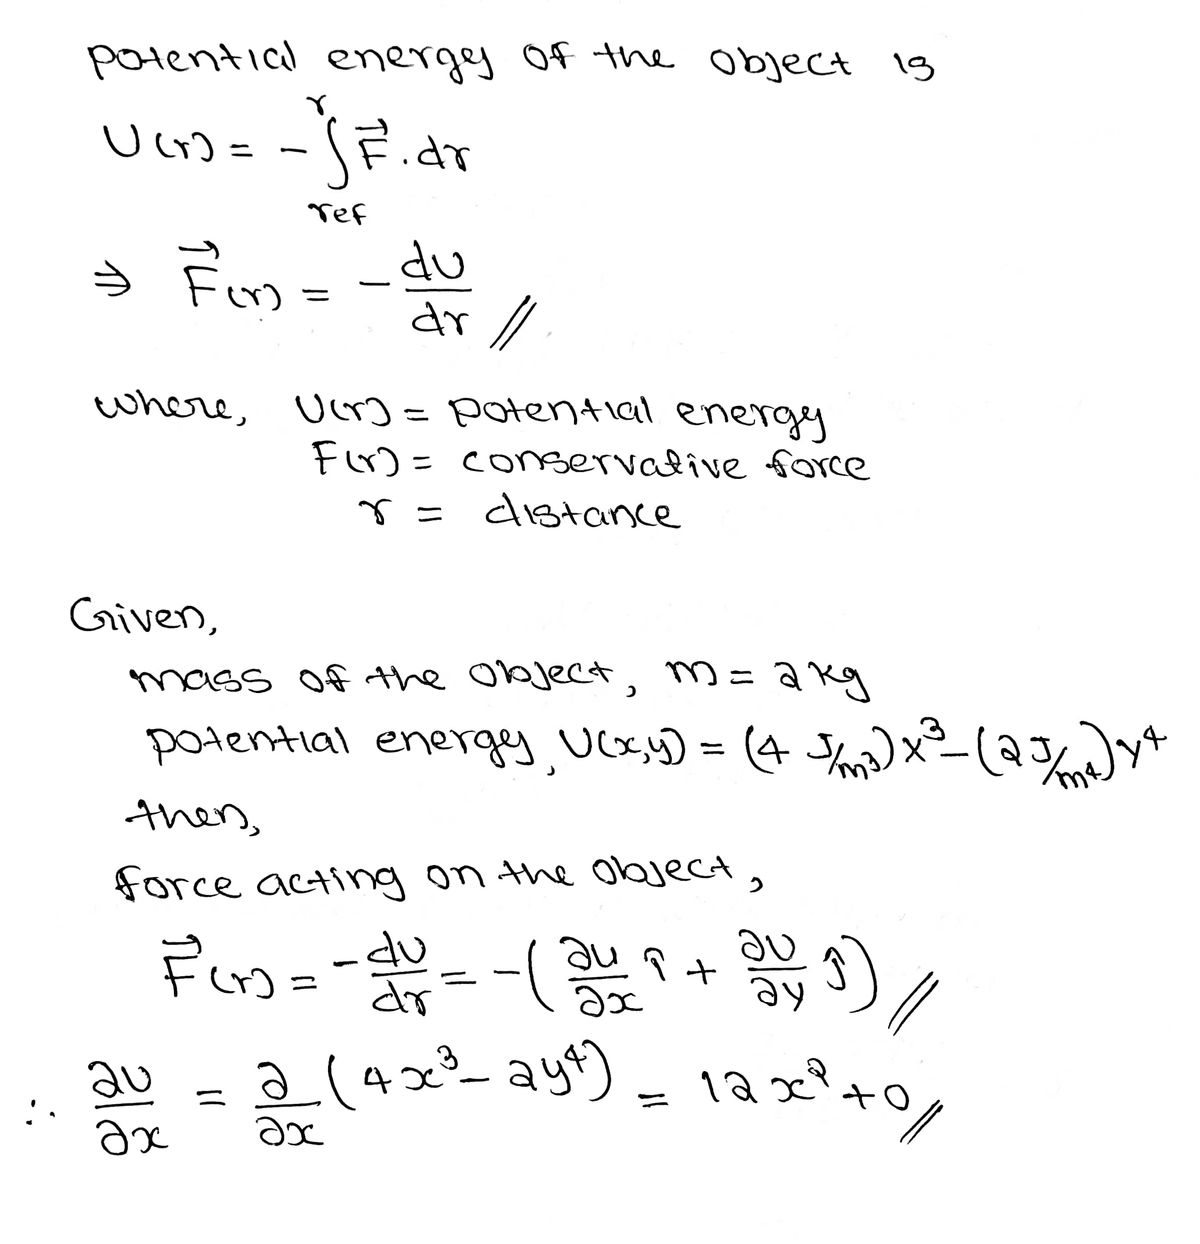 potential energy of the object is
U(r) = - ∫ᵣₑfʳ F⃗ . dr
⇒ F⃗(r) = - dU/dr //
where, U(r) = potential energy
F(r) = conservative force
r = distance
Given,
mass of the object, m = 2 kg
potential energy, U(x,y) = (4 J/m³) x³ - (2 J/m⁴) y⁴
then,
force acting on the object,
F⃗(r) = - dU/dr = - ( ∂U/∂x î + ∂U/∂y ĵ ) //
∴ ∂U/∂x = ∂/∂x ( 4x³ - 2y⁴ ) = 12x² + 0 //